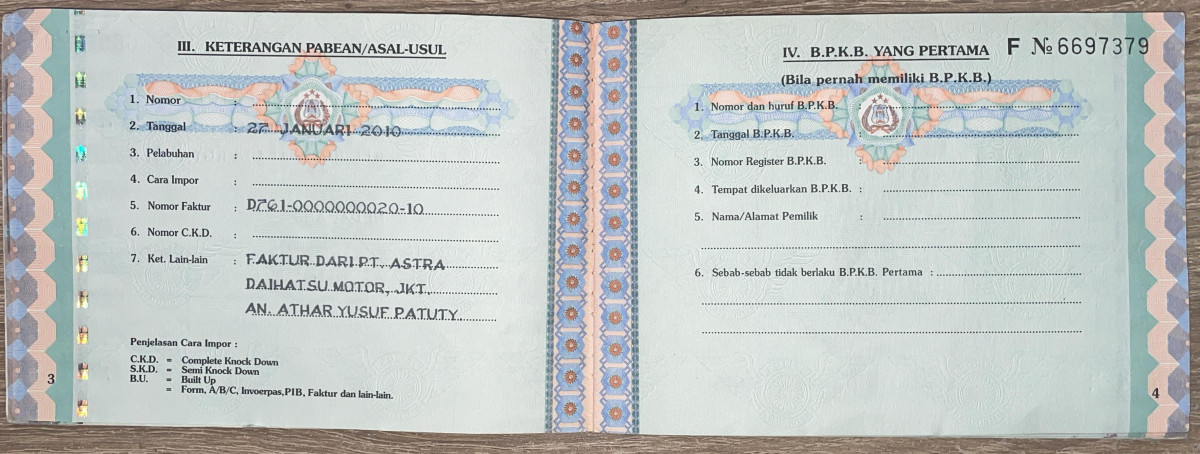 III. KETERANGAN PABEAN/ASAL-USUL
1. Nomor :
2. Tanggal : 27 JANUARI 2010
3. Pelabuhan :
4. Cara Impor :
5. Nomor Faktur : D761-0000000020-10
6. Nomor C.K.D. :
7. Ket. Lain-lain : FAKTUR DARI PT. ASTRA
DAIHATSU MOTOR, JKT.
AN. ATHAR YUSUF PATUTY
Penjelasan Cara Impor :
C.K.D. = Complete Knock Down
S.K.D. = Semi Knock Down
B.U. = Built Up
= Form, A/B/C, Invoerpas,PIB, Faktur dan lain-lain.
3
IV. B.P.K.B. YANG PERTAMA F № 6697379
(Bila pernah memiliki B.P.K.B.)
1. Nomor dan huruf B.P.K.B. :
2. Tanggal B.P.K.B. :
3. Nomor Register B.P.K.B. :
4. Tempat dikeluarkan B.P.K.B. :
5. Nama/Alamat Pemilik :
6. Sebab-sebab tidak berlaku B.P.K.B. Pertama :
4